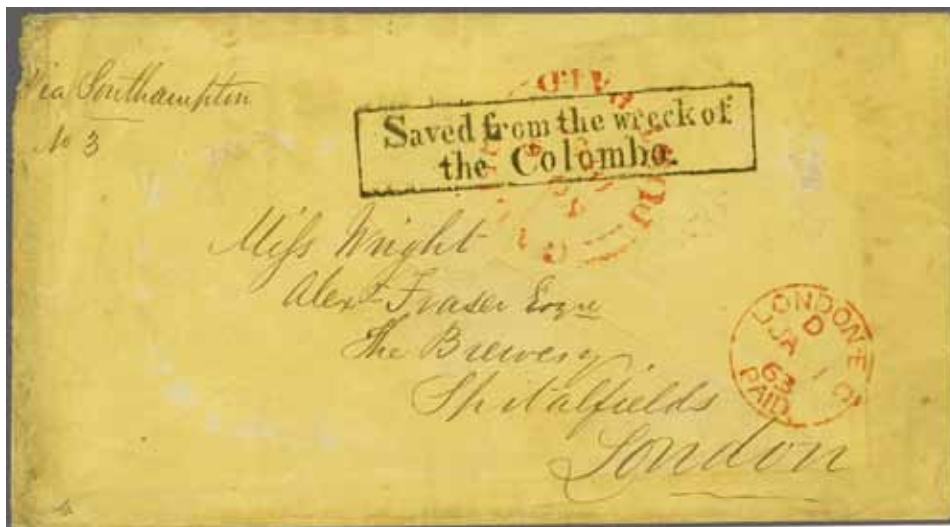 Via Southampton
No 3
Saved from the wreck of
the Colombo.
PAID
Miss Wright
Alexr Fraser Esqre
The Brewery
Spitalfields
London
LONDON E C
D
JA 1
63
PAID